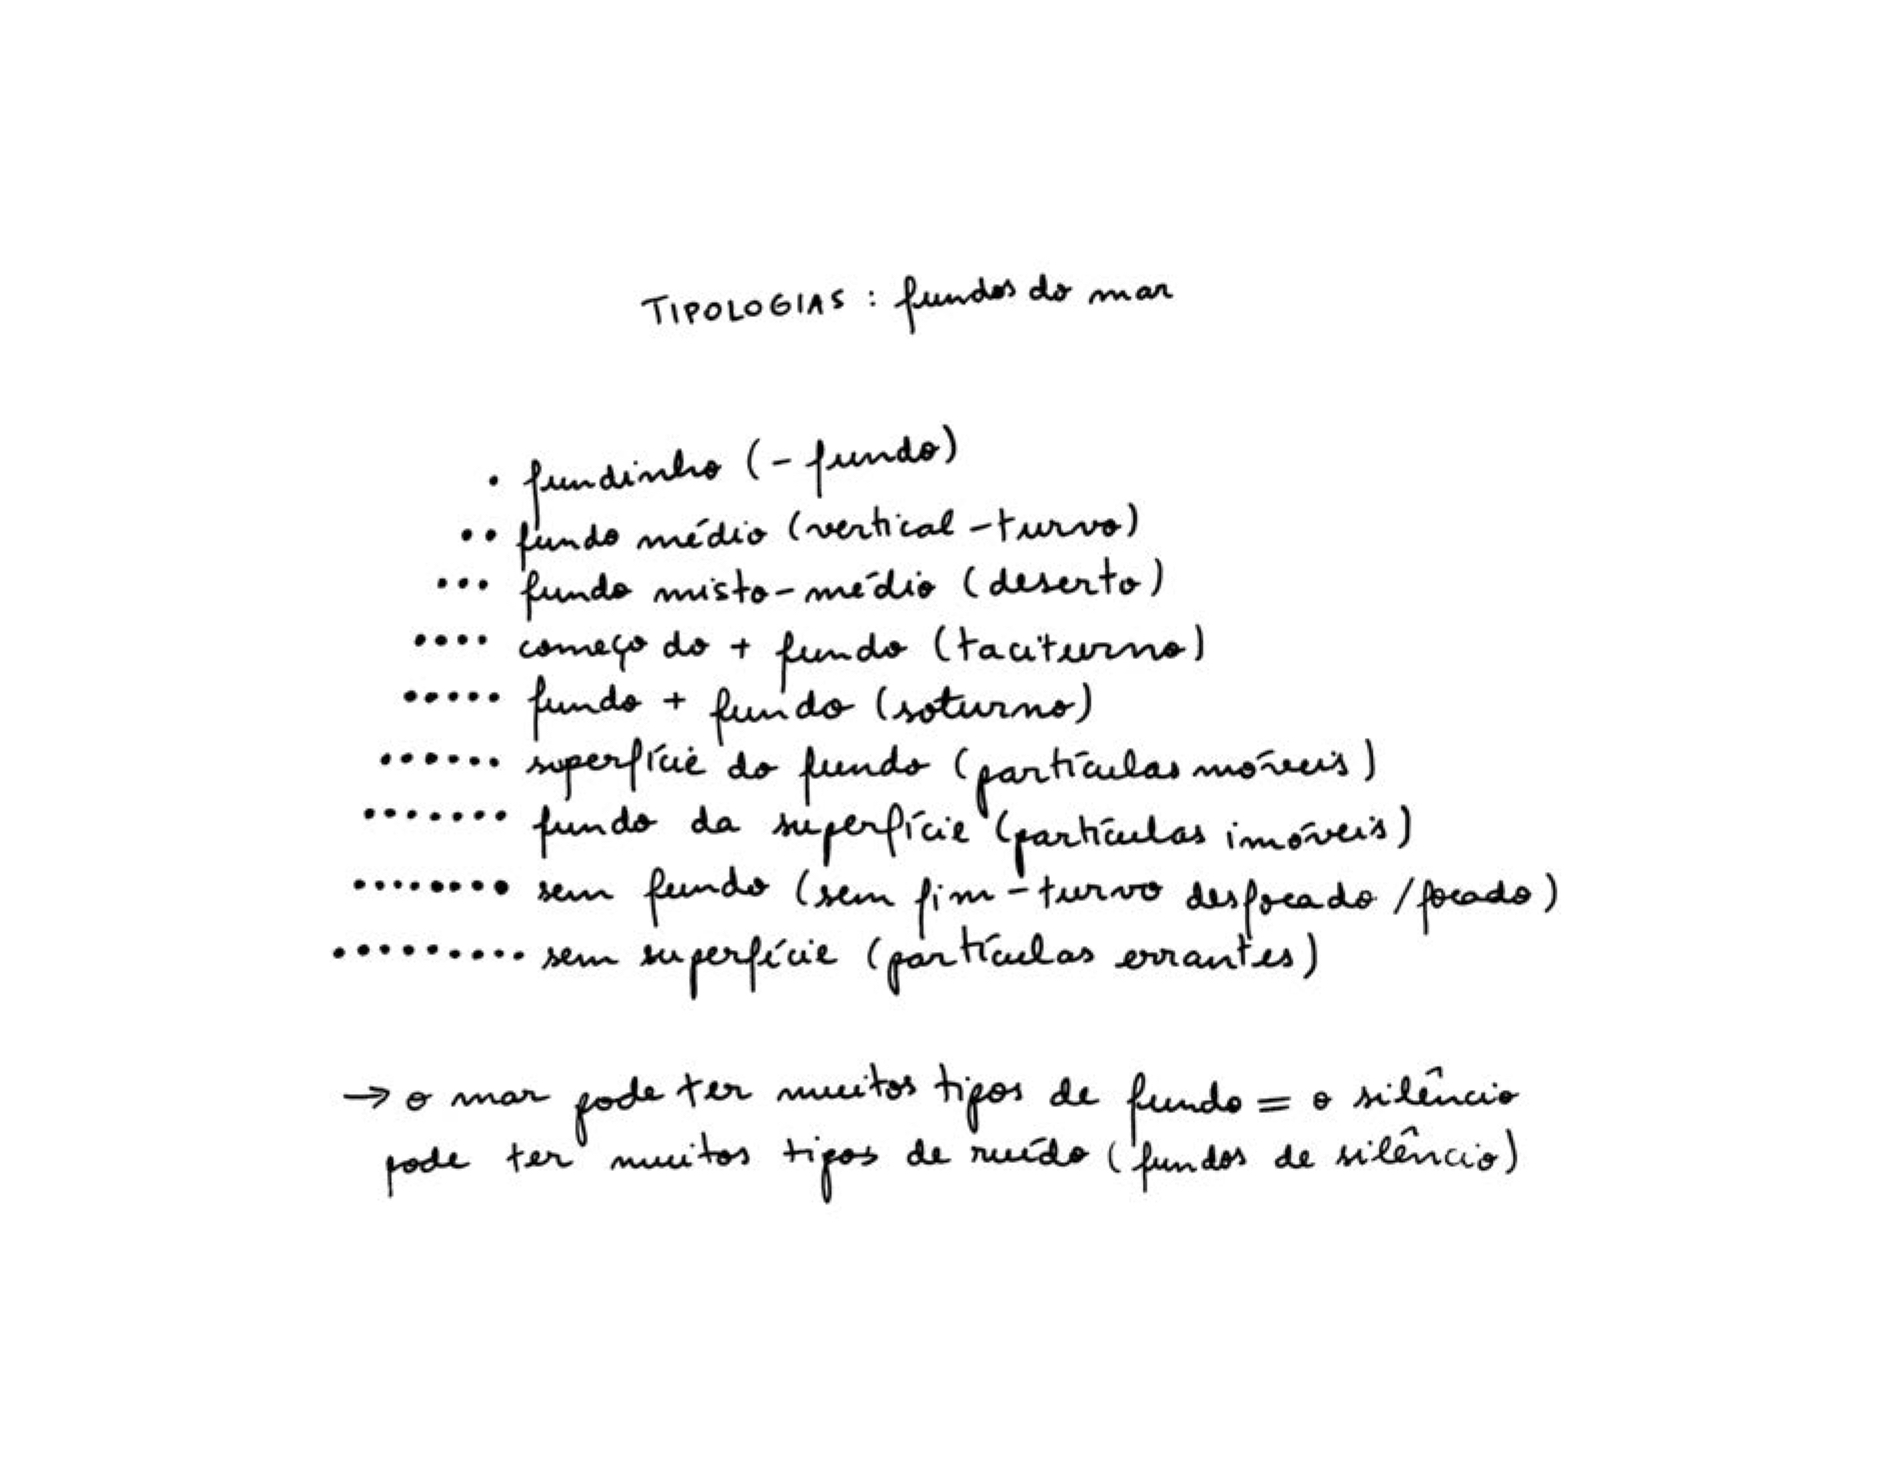 TIPOLOGIAS : fundos do mar
• fundinho (- fundo)
•• fundo médio (vertical - turvo)
••• fundo misto-médio (deserto)
•••• começo do + fundo (taciturno)
••••• fundo + fundo (soturno)
•••••• superfície do fundo (partículas móveis)
••••••• fundo da superfície (partículas imóveis)
•••••••• sem fundo (sem fim - turvo desfocado / focado)
••••••••• sem superfície (partículas errantes)
→ o mar pode ter muitos tipos de fundo = o silêncio
pode ter muitos tipos de ruído (fundos de silêncio)